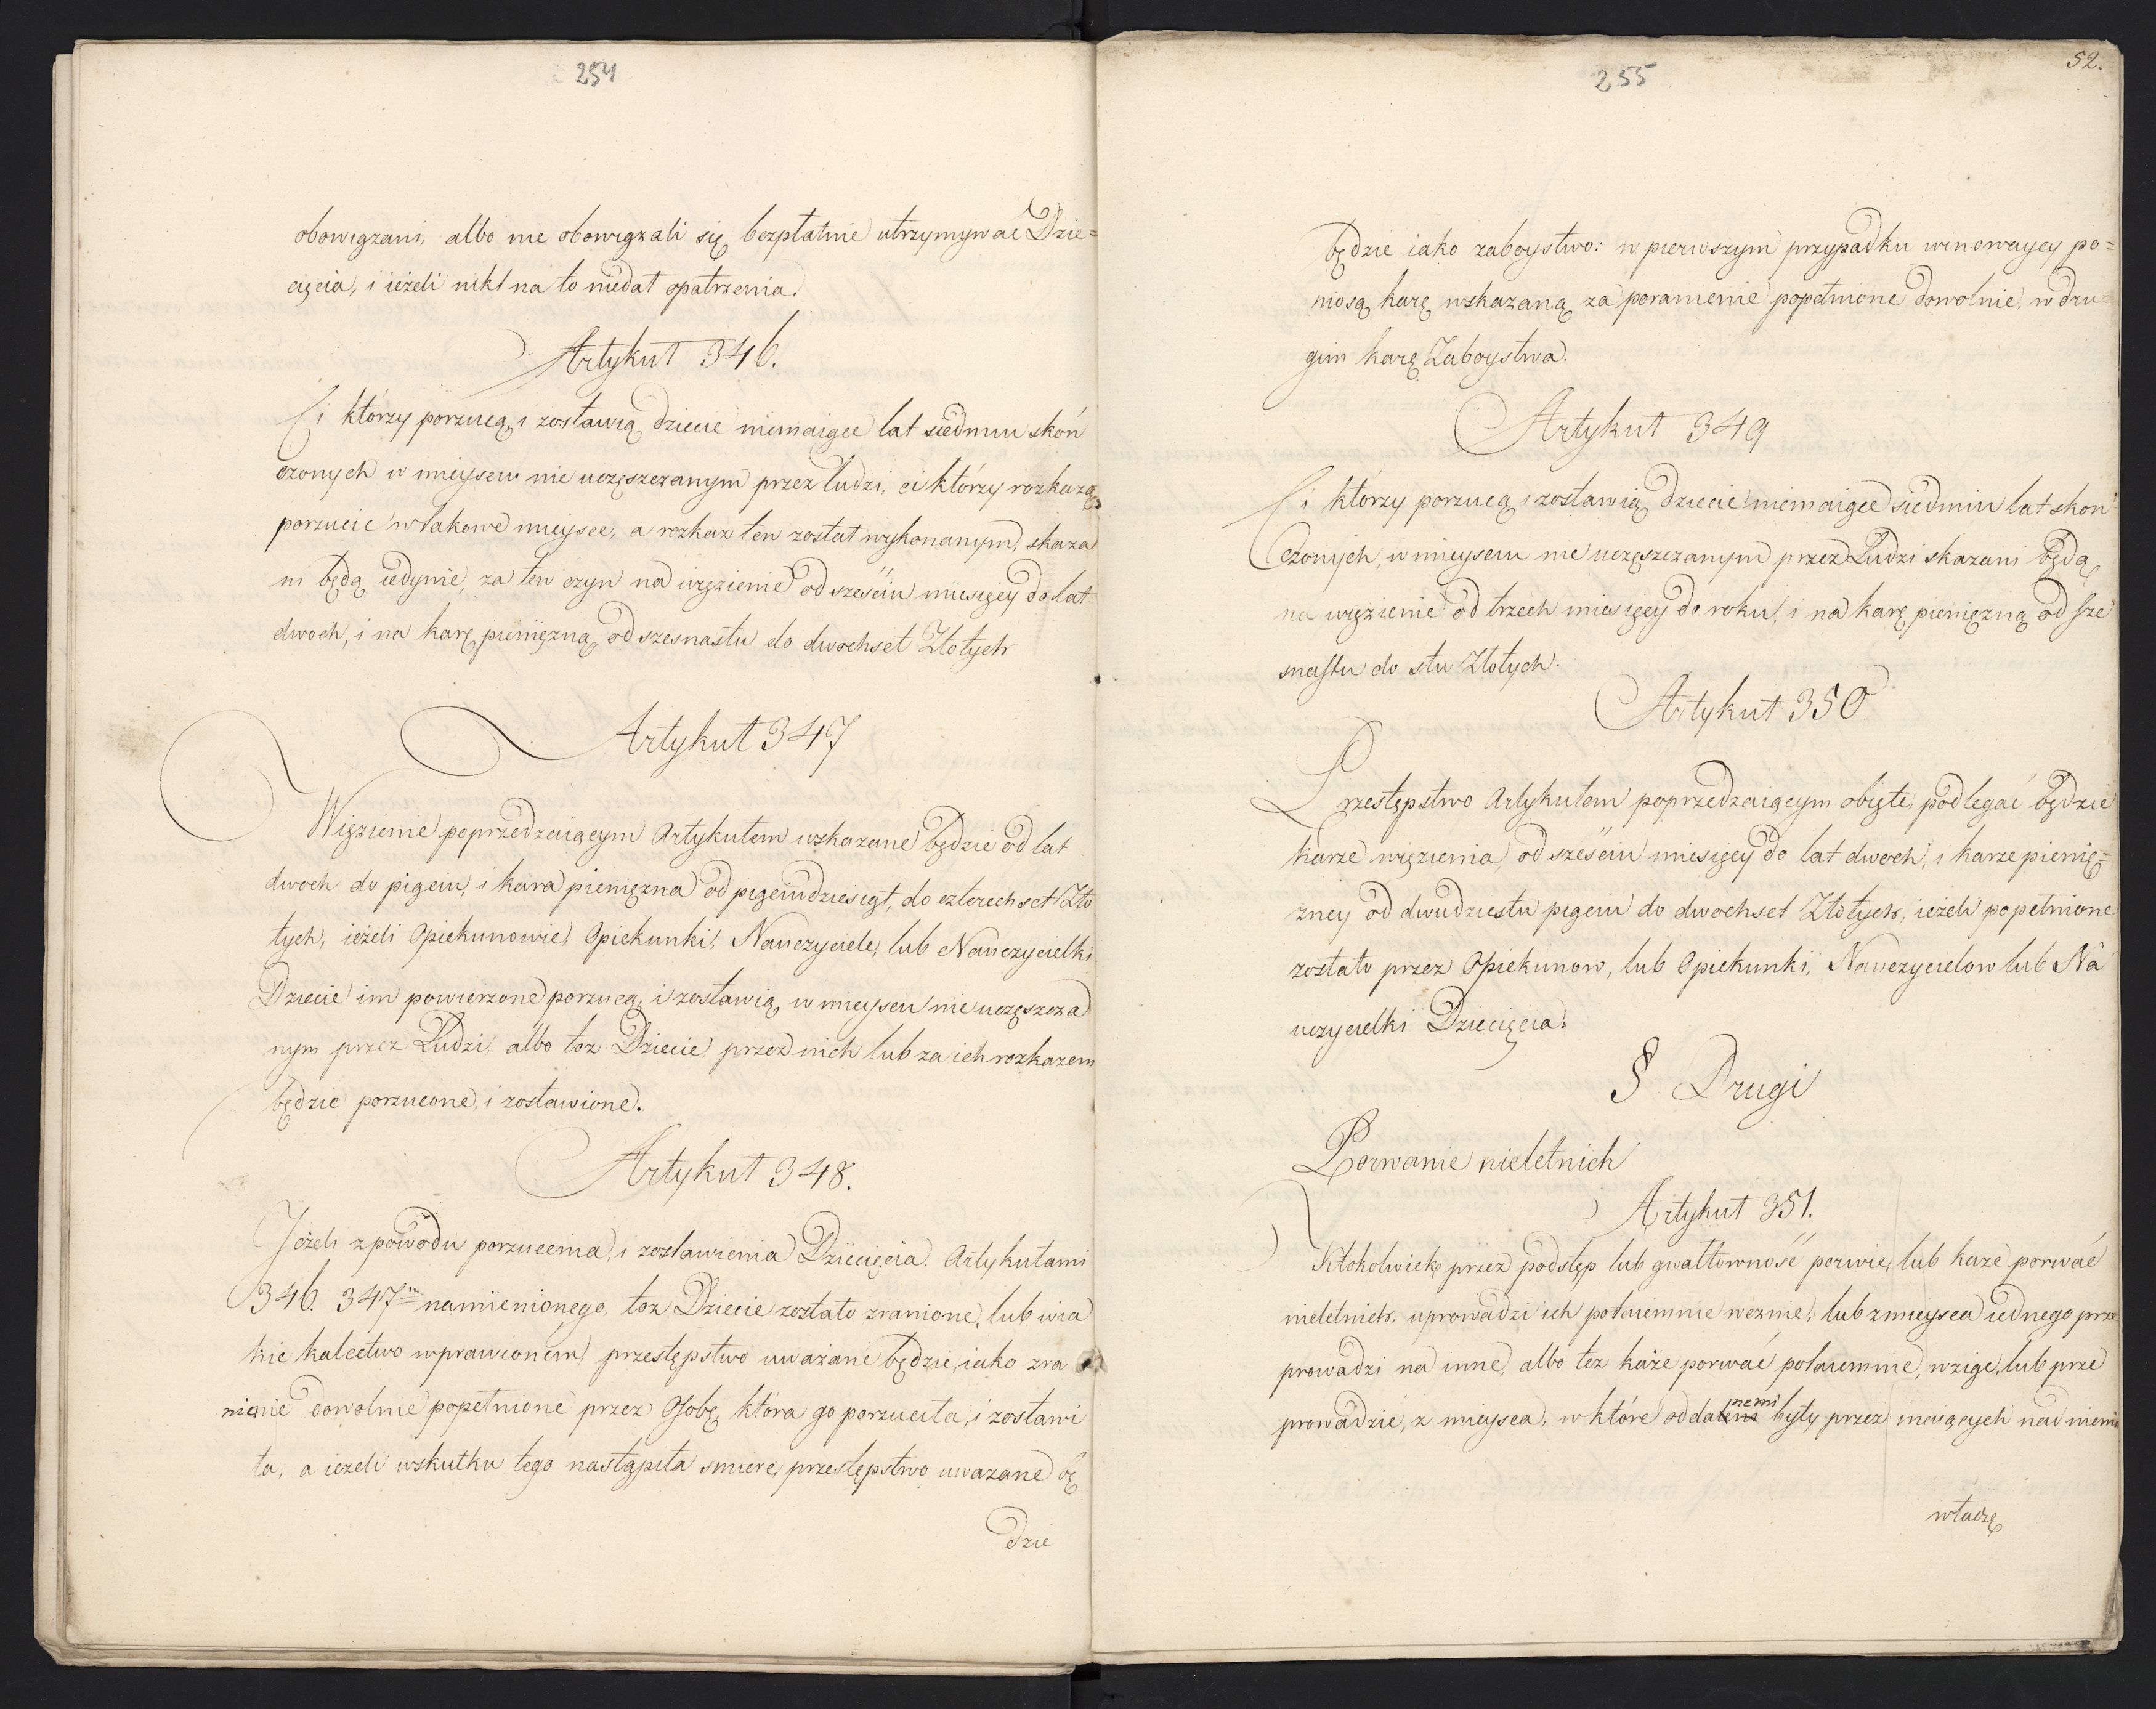 254
obowiązani, albo nie obowiązali się bezpłatnie utrzymywać Dzie=
cięcia, i ieżeli nikt na to niedał opatrzenia.
Artykuł 346.
Ci którzy porzucą, i zostawią dziecie niemaiące lat siedmiu skoń
czonych w mieyscu nie uczęszczanym przez ludzi, ci którzy rozkażą
porzucić w takowe mieysce, a rozkaz ten został wykonanym, skaza
ni będą iedynie, za ten czyn na więzienie od sześciu miesięcy do lat
dwoch, i na karę pieniężną, od szesnastu do dwochset Złotych
Artykuł 347
Więzienie poprzedzaiącym Artykułem wskazane będzie od lat
dwoch do pięciu, i kara pieniężna od pięciudziesiąt, do czterechset Zło
tych, ieżeli Opiekunowie, Opiekunki, Nauczyciele, lub Nauczycielki
Dziecie im powierzone porzucą, i zostawią, w mieyscu nie uczęszcza
nym przez Ludzi, albo toz Dziecie przez nich lub za ich rozkazem
będzie porzucone, i zostawione.
Artykuł 348.
Jeżeli z powodu porzucenia, i zostawienia Dziecięcia. Artykułami
346. 347m namienionego, toz Dziecie zostało zranione, lub w ia
kie kalectwo wprawionem, przestępstwo uważane będzie, iako zra
nienie dowolnie popełnione przez Osobę, która go porzuciła, i zostawi
ła, a ieżeli wskutku tego nastąpiła smierc, przestępstwo uwazane bę
dzie
52.
255
będzie iako zaboystwo: w pierwszym przypadku winowaycy po=
niosą, karę, wskazaną, za poranienie popełnione dowolnie, w dru=
gim karę Zaboystwa.
Artykuł 349
Ci którzy porzucą, i zostawią, dziecie niemaiące siedmiu lat skoń=
czonych, w mieyscu nie uczęszczanym przez Ludzi skazani będą,
na więzienie od trzech miesięcy do roku, i na karę pieniężną od sze
snastu do stu Złotych.
Artykuł 350
Przestępstwo Artykułem poprzedzaiącym obięte, podlegać będzie
karze więzienia, od sześciu miesięcy do lat dwoch, i karze pienię=
żney od dwudziestu pięciu do dwochset Złotych, ieżeli popełnione
zostało przez Opiekunow, lub Opiekunki, Nauczycielow lub Na
uczycielki Dziecięcia.
§ Drugi
Porwanie nieletnich
Artykuł 351.
Ktokolwiek, przez podstęp lub gwałtowność porwie, lub każe porwać
nieletnich, uprowadzi ich potaiemnie weznie, lub z mieysca iednego prze
prowadzi na inne, albo tez każe porwać potaiemnie, wziąć, lub prze
prowadzić, z mieysca, w które oddanemi były przez maiących nad niemi
władzę